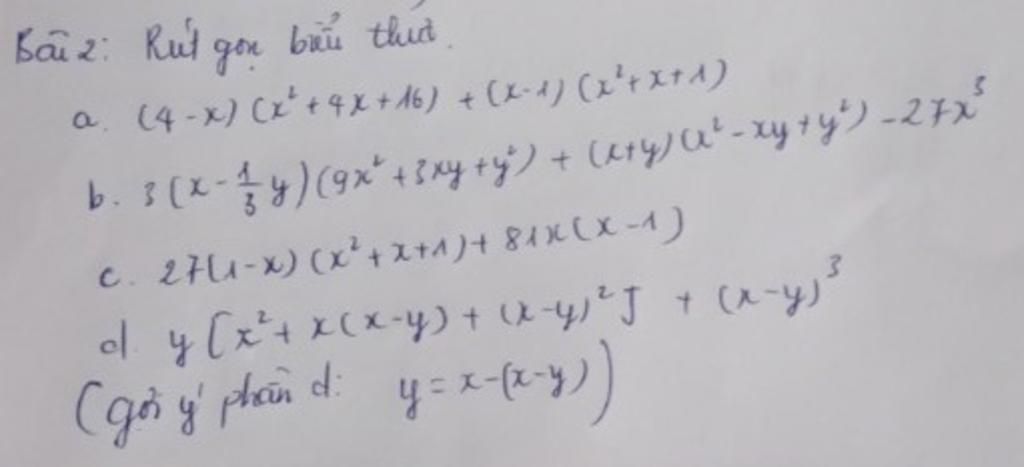 Bài 2: Rút gọn biểu thức.
a. (4-x)(x²+4x+16) + (x-1)(x²+x+1)
b. 3(x-\frac{1}{3}y)(9x²+3xy+y²) + (x+y)(x²-xy+y²) -27x³
c. 27(1-x)(x²+x+1)+ 81x(x-1)
d. y[x²+ x(x-y) + (x-y)²] + (x-y)³
(gợi ý phần d: y = x-(x-y))